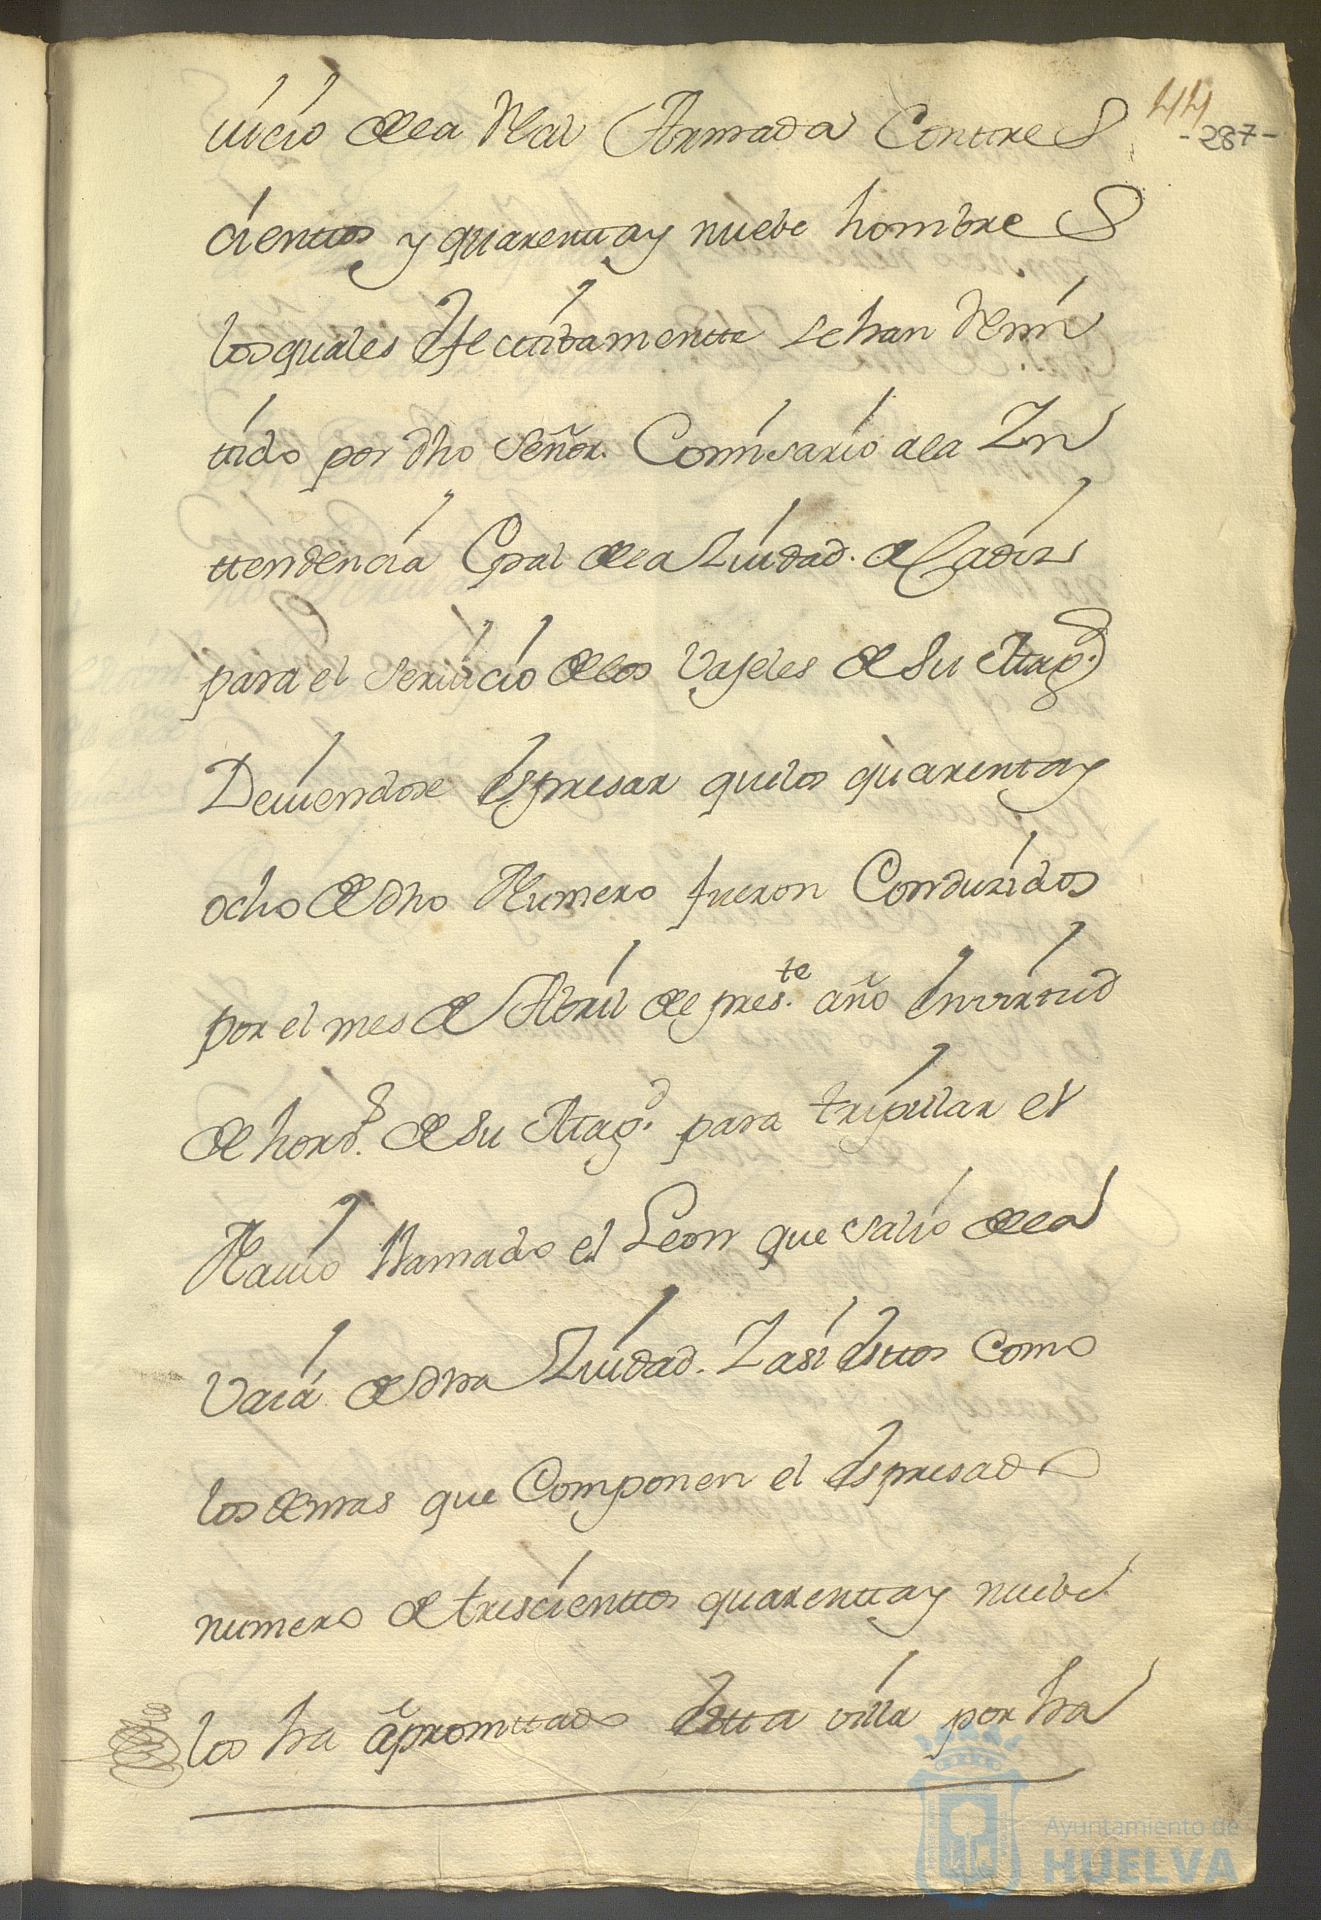 44
-287-
uicio dela Real Armada Contres
cientos y quarenta y nuebe hombres
los quales Efectibamentte se han Remi
tido por dho Señor. Comisario a la Yn
ttendencia Gral dela Ziudad. de Cadiz
para el seruicio delos Vajeles de Su Magd.
Deuiendose Espresar quelos quarenta y
ocho de dho Numero fueron Conduzidos
por el mes de Abril de preste. año En virtud
de hords. de Su Magd. para tripular el
Nauio Llamado el Leon que salio dela
Vaia de dha Ziudad. Y asi Esttos como
los demas que Componen el Espresado
numero de trescienttos quarentta y nuebe
los ha apromttado Estta villa por ha
Ayuntamiento de
HUELVA